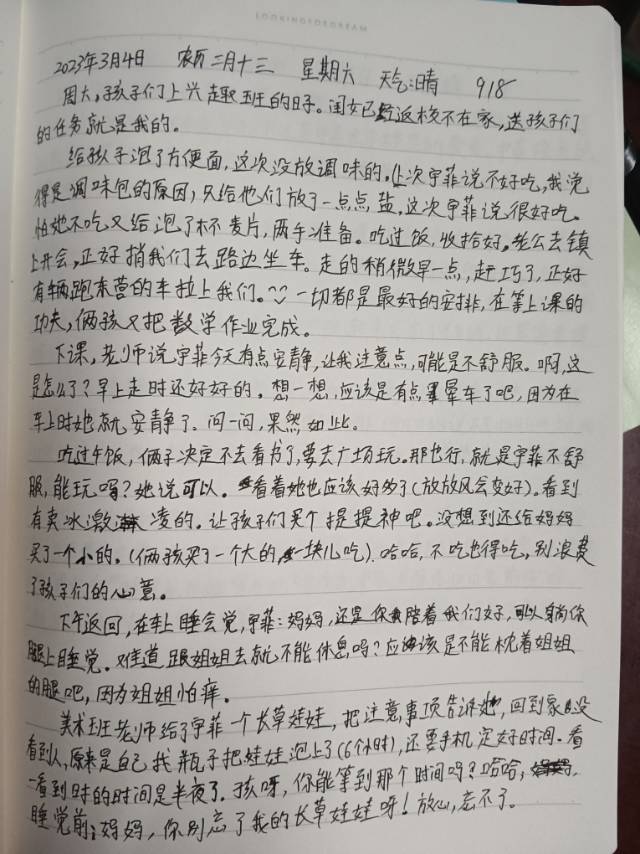 LOOKINGFORDREAM
2023年3月4日 农历二月十三 星期六 天气:晴 918
周六,孩子们上兴趣班的日子。闺女已经返校不在家,送孩子们
的任务就是我的。
给孩子泡了方便面,这次没放调味的,上次宇菲说不好吃,我觉
得是调味包的原因,只给他们放了一点点盐,这次宇菲说很好吃。
怕她不吃又给泡了杯麦片,两手准备。吃过饭,收拾好,老公去镇
上开会,正好捎我们去路边坐车。走的稍微早一点,赶巧了,正好
有辆跑东营的车拉上我们。一切都是最好的安排,在等上课的
功夫,俩孩又把数学作业完成。
下课,老师说宇菲今天有点安静,让我注意点,可能是不舒服。啊,这
是怎么了?早上走时还好好的。想一想,应该是有点晕车了吧,因为在
车上时她就安静了。问一问,果然如此。
吃过午饭,俩孑决定不去看书了,要去广场玩。那也行,就是宇菲不舒
服,能玩吗?她说可以。看着她也应该好多了(放放风会变好)。看到
有卖冰激凌的。让孩子们买个提提神吧。没想到还给妈妈
买了一个小的。(俩孩买了一个大的,一块儿吃)。哈哈,不吃也得吃,别浪费
了孩子们的心意。
下午返回,在车上睡会觉,宇菲:妈妈,还是你陪着我们好,可以躺你
腿上睡觉。难道跟姐姐去就不能休息吗?应该是不能枕着姐姐
的腿吧,因为姐姐怕痒。
美术班老师给了宇菲一个长草娃娃,把注意事项告诉她,回到家没
看到人,原来是自己找瓶子把娃娃泡上了(6个小时),还要手机定好时间。看
一看到时的时间是半夜了。孩呀,你能等到那个时间吗?哈哈,
睡觉前:妈妈,你别忘了我的长草娃娃呀!放心,忘不了。